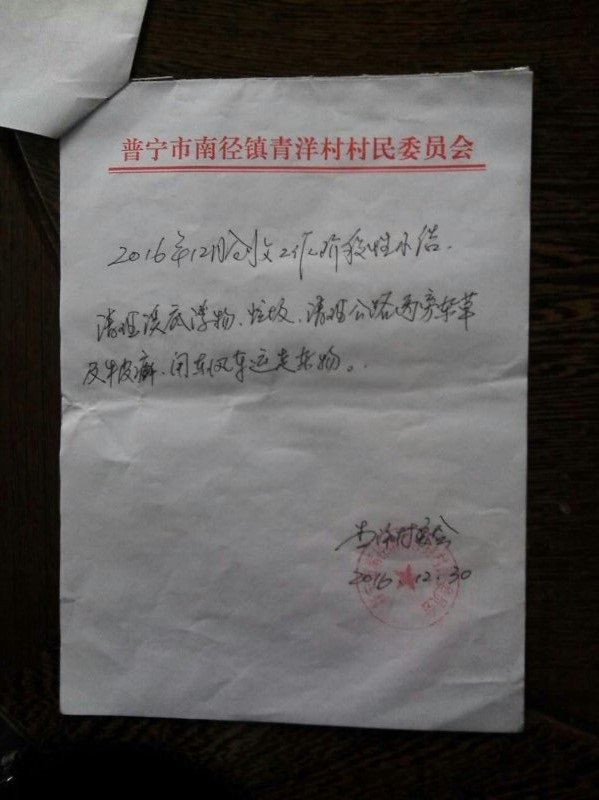 普宁市南径镇青洋村村民委员会
2016年12月创文工作阶段性小结.
清理溪底浮物、垃圾、清理公路两旁杂草
及牛皮癣.用东风车运走杂物。
青洋村委会
2016.12.30